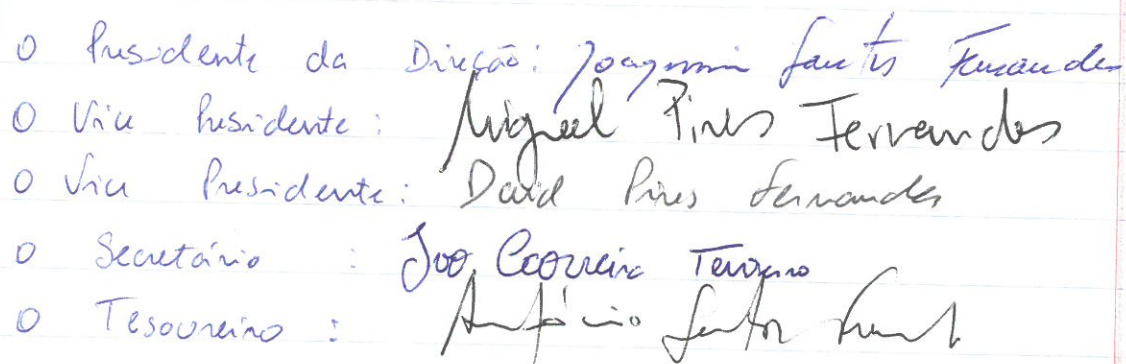 O Presidente da Direção: Joaquim Santos Fernandes
O Vice Presidente: Miguel Pires Fernandes
O Vice Presidente: David Pires Fernandes
O Secretário : Ivo Correira
O Tesoureiro : António Santos